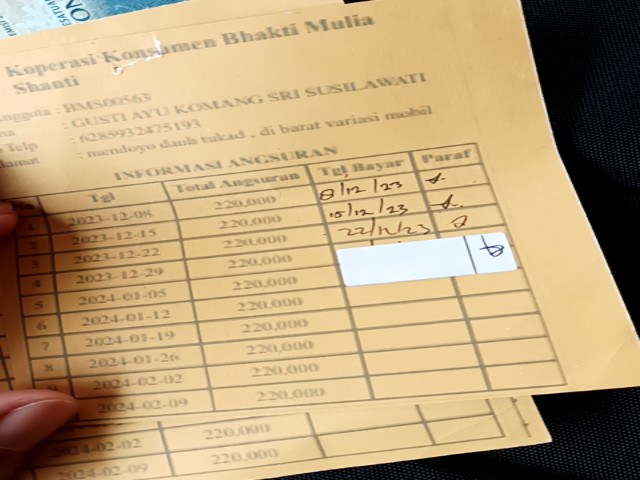 Koperasi Konsumen Bhakti Mulia
Shanti
Anggota : BMS00563
: GUSTI AYU KOMANG SRI SUSILAWATI
Telp : 6285932475193
: mendoyo dauh tukad , di barat variasi mobil
INFORMASI ANGSURAN
Tgl Total Angsuran Tgl Bayar Paraf
1 2023-12-08 220,000 8/12/23
2 2023-12-15 220,000 15/12/23
3 2023-12-22 220,000 22/12/23
4 2023-12-29 220,000
5 2024-01-05 220,000
6 2024-01-12 220,000
7 2024-01-19 220,000
8 2024-01-26 220,000
2024-02-02 220,000
2024-02-09 220,000
2024-02-02 220,000
2024-02-09 220,000